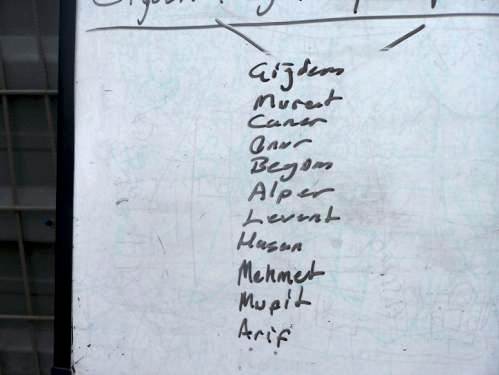 Çiğdem
Murat
Caner
Onur
Begom
Alper
Levent
Hasan
Mehmet
Mupit
Arif